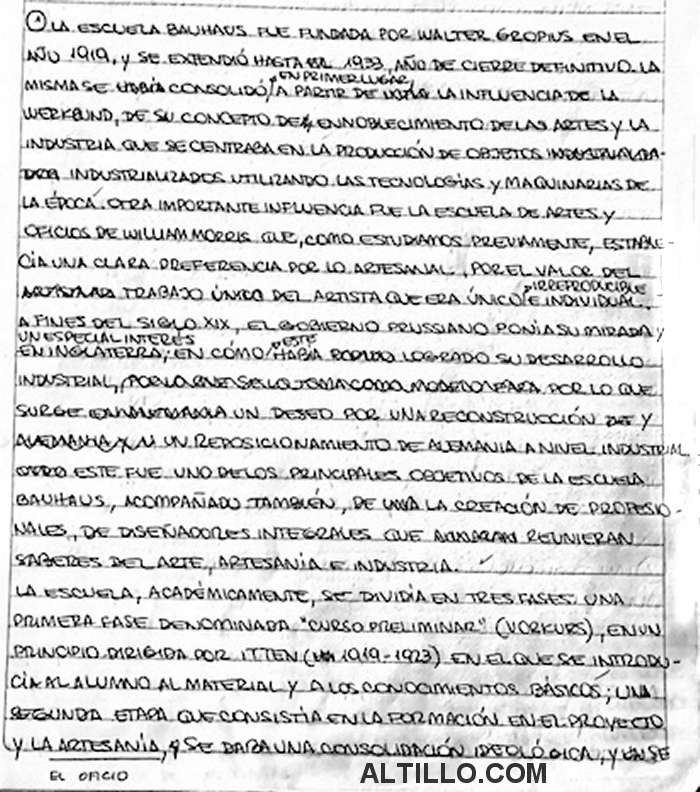 ① LA ESCUELA BAUHAUS FUE FUNDADA POR WALTER GROPIUS EN EL
AÑO 1919, Y SE EXTENDIÓ HASTA EL 1933, AÑO DE CIERRE DEFINITIVO. LA
EN PRIMER LUGAR,
MISMA SE HABÍA CONSOLIDÓ, A PARTIR DE LA INFLUENCIA DE LA
WERKBUND, DE SU CONCEPTO DE ENNOBLECIMIENTO DE LAS ARTES Y LA
INDUSTRIA QUE SE CENTRABA EN LA PRODUCCIÓN DE OBJETOS INDUSTRIALIZA-
DOS INDUSTRIALIZADOS UTILIZANDO LAS TECNOLOGÍAS Y MAQUINARIAS DE
LA ÉPOCA. OTRA IMPORTANTE INFLUENCIA FUE LA ESCUELA DE ARTES Y
OFICIOS DE WILLIAM MORRIS QUE, COMO ESTUDIAMOS PREVIAMENTE, ESTABLE-
CÍA UNA CLARA PREFERENCIA POR LO ARTESANAL, POR EL VALOR DEL
IRREPRODUCIBLE
TRABAJO ÚNICO DEL ARTISTA QUE ERA ÚNICO, E INDIVIDUAL.
A FINES DEL SIGLO XIX, EL GOBIERNO PRUSSIANO PONÍA SU MIRADA Y
UN ESPECIAL INTERÉS ESTE
EN INGLATERRA; EN CÓMO HABÍA PODIDO LOGRADO SU DESARROLLO
INDUSTRIAL, POR LO QUE SE LO TOMA COMO MODELO PARA POR LO QUE
SURGE UN DESEO POR UNA RECONSTRUCCIÓN DE Y
ALEMANIA Y UN REPOSICIONAMIENTO DE ALEMANIA A NIVEL INDUSTRIAL
OTRO ESTE FUE UNO DE LOS PRINCIPALES OBJETIVOS DE LA ESCUELA
BAUHAUS, ACOMPAÑADO TAMBIÉN, DE LA CREACIÓN DE PROFESIO-
NALES, DE DISEÑADORES INTEGRALES QUE REUNIERAN
SABERES DEL ARTE, ARTESANÍA E INDUSTRIA.
LA ESCUELA, ACADÉMICAMENTE, SE DIVIDÍA EN TRES FASES: UNA
PRIMERA FASE DENOMINADA "CURSO PRELIMINAR" (VORKURS), EN UN
PRINCIPIO DIRIGIDA POR ITTEN (1919-1923) EN EL QUE SE INTRODU-
CÍA AL ALUMNO AL MATERIAL Y A LOS CONOCIMIENTOS BÁSICOS; UNA
SEGUNDA ETAPA QUE CONSISTÍA EN LA FORMACIÓN EN EL PROYECTO
Y LA ARTESANÍA, Y SE DABA UNA CONSOLIDACIÓN IDEOLÓGICA, Y EN SE
EL OFICIO
ALTILLO.COM